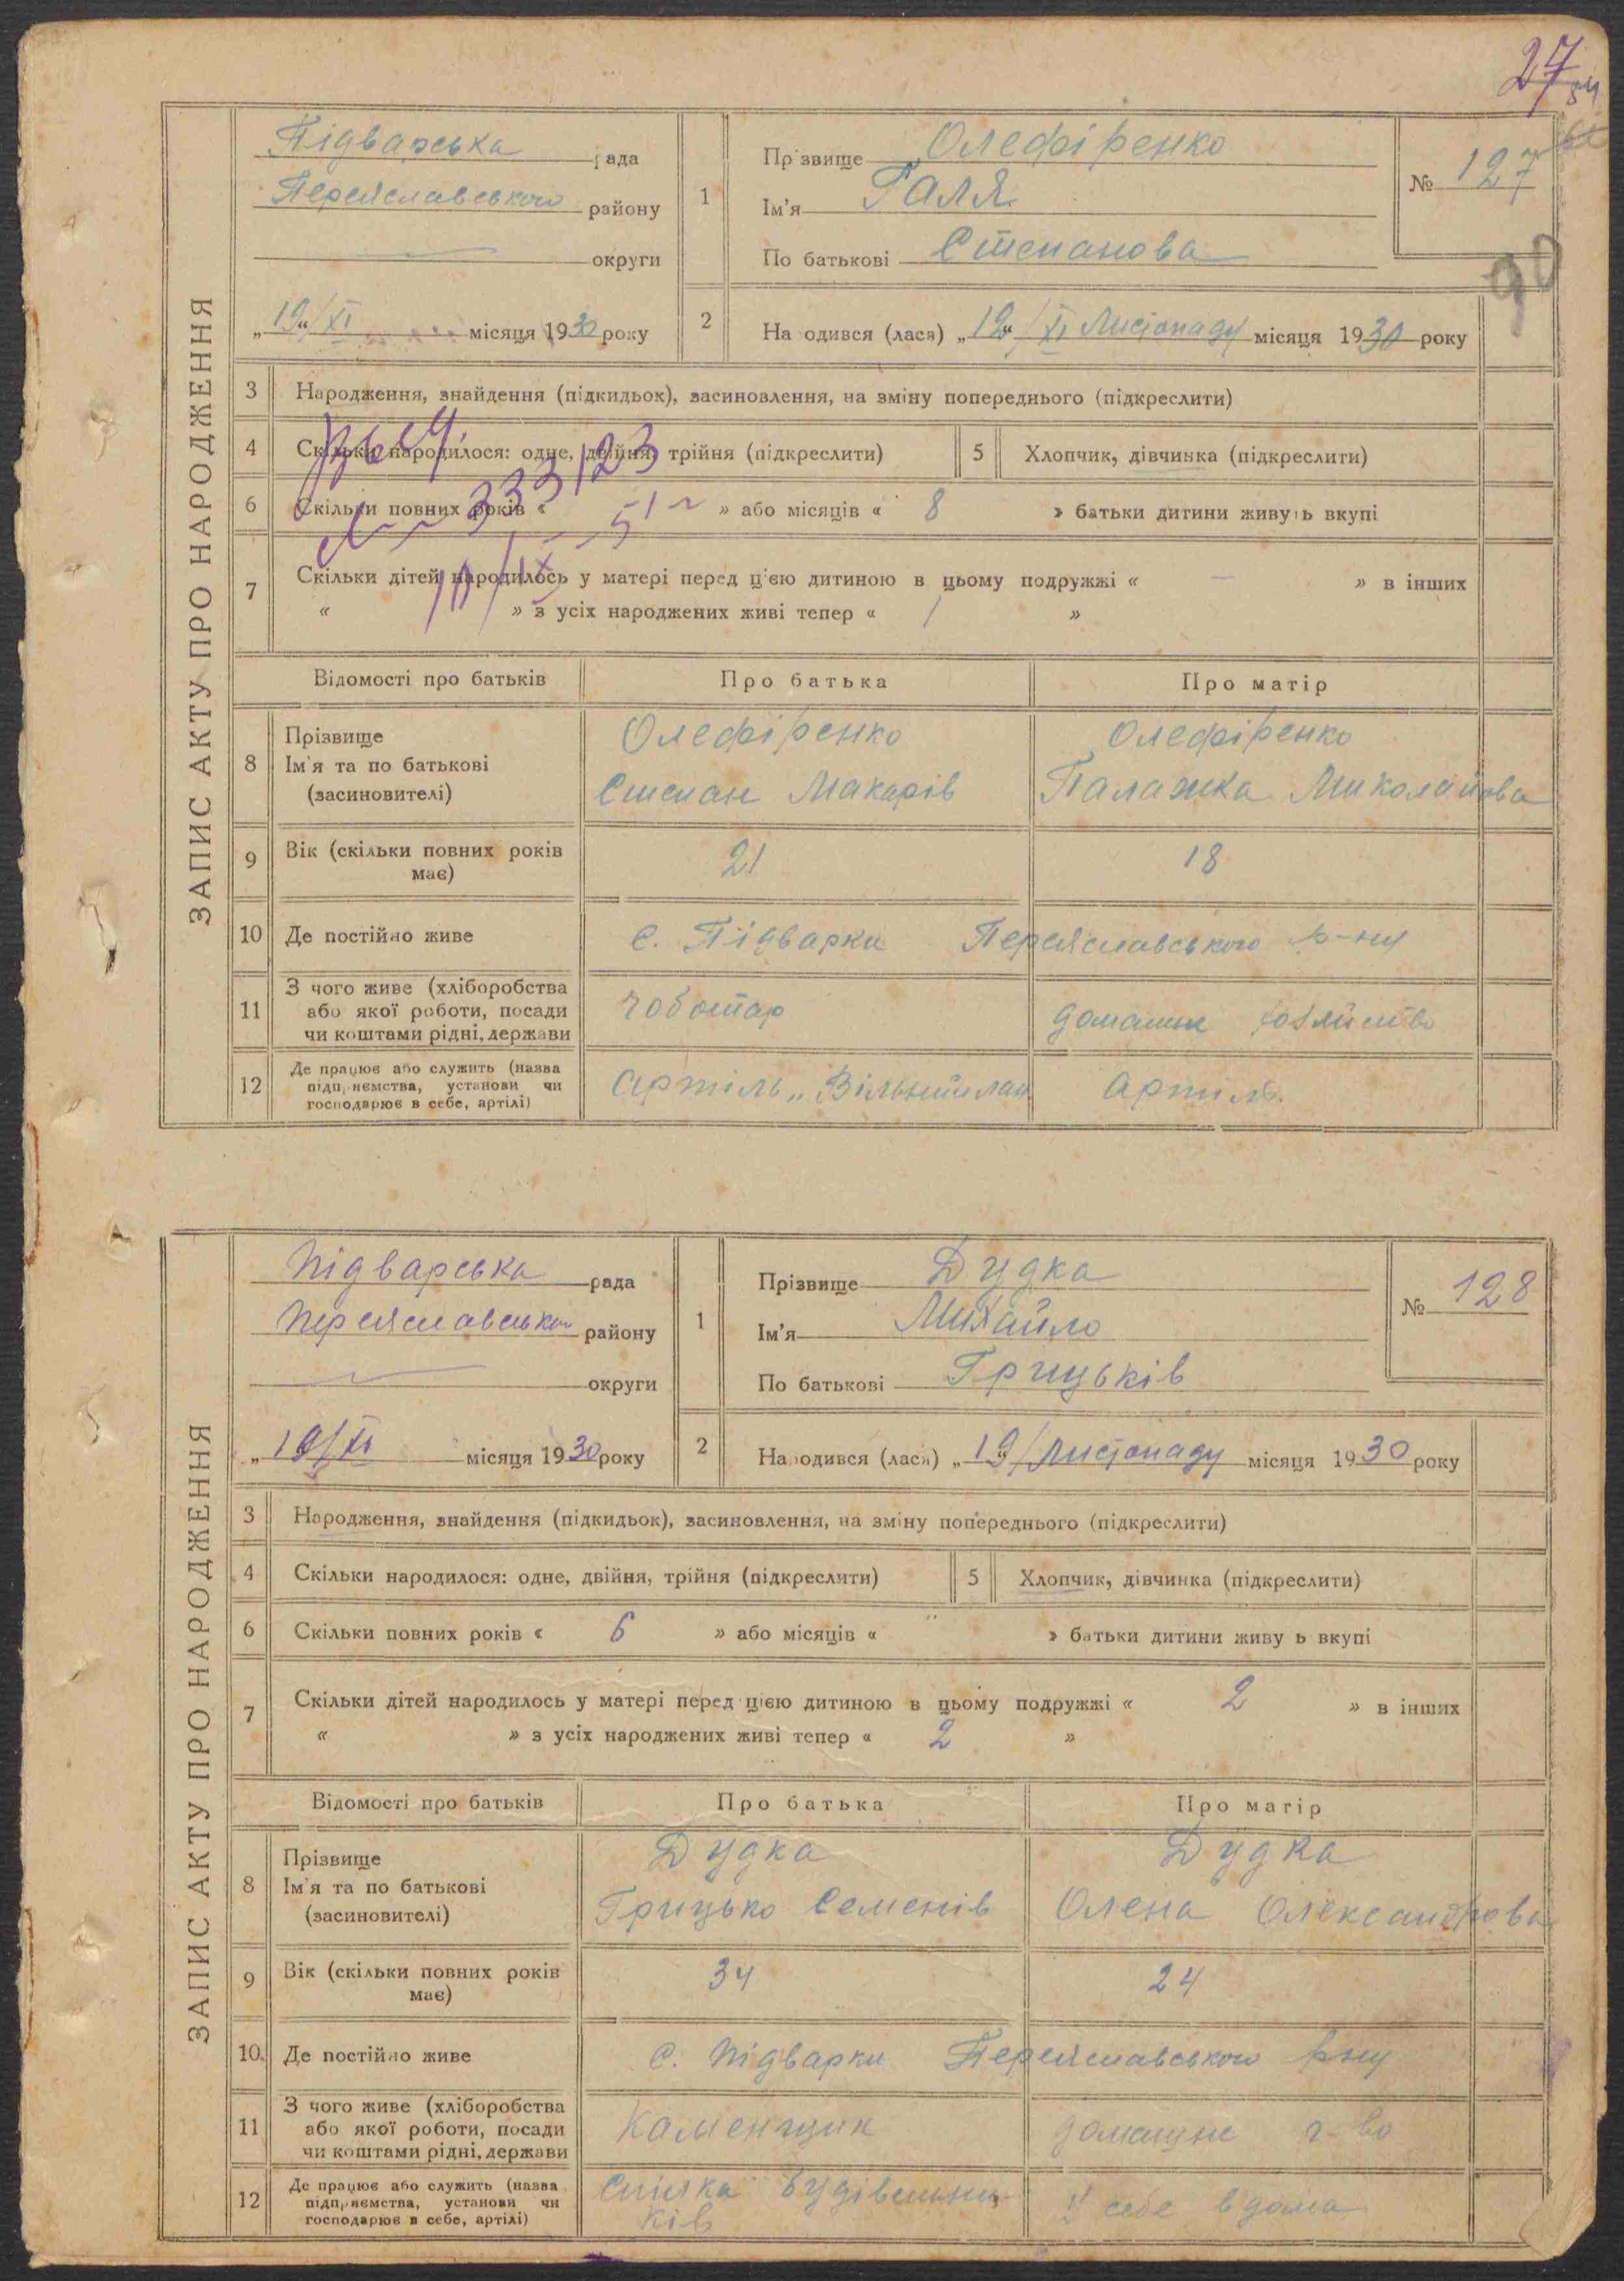 27
ЗАПИС АКТУ ПРО НАРОДЖЕННЯ
Підварська рада
Переяславського району
округи
„19“/XI місяця 1930 року
1 Прізвище Олефіренко
Ім'я Галя
По батькові Степанова
№ 127
90
2 Народився (лася) „19“/XI Листопаду місяця 1930 року
3 Народження, знайдення (підкидьок), засиновлення, на зміну попереднього (підкреслити)
4 Скільки народилося: одне, двійня, трійня (підкреслити) 5 Хлопчик, дівчинка (підкреслити)
333123
6 Скільки повних років « » або місяців « 8 » батьки дитини живуть вкупі
51
10/IX
7 Скільки дітей народилось у матері перед цією дитиною в цьому подружжі « — » в інших
« » з усіх народжених живі тепер « 1 »
Відомості про батьків Про батька Про матір
8 Прізвище Ім'я та по батькові (засиновителі)
Олефіренко Степан Макарів
Олефіренко Палажка Миколайова
9 Вік (скільки повних років має) 21 18
10 Де постійно живе с. Підварки Переяславського р-ну
11 З чого живе (хліборобства або якої роботи, посади чи коштами рідні, держави
чоботар домашнє
12 Де працює або служить (назва підприємства, установи чи господарює в себе, артілі)
Артіль „Вільний лан. Артіль.
ЗАПИС АКТУ ПРО НАРОДЖЕННЯ
Підварська рада
Переяславського району
округи
„19/XI місяця 1930 року
1 Прізвище Дудка
Ім'я Михайло
По батькові Грицьків
№ 128
2 Народився (лася) „19/Листопаду місяця 1930 року
3 Народження, знайдення (підкидьок), засиновлення, на зміну попереднього (підкреслити)
4 Скільки народилося: одне, двійня, трійня (підкреслити) 5 Хлопчик, дівчинка (підкреслити)
6 Скільки повних років « 6 » або місяців « » батьки дитини живуть вкупі
7 Скільки дітей народилось у матері перед цією дитиною в цьому подружжі « 2 » в інших
« » з усіх народжених живі тепер « 2 »
Відомості про батьків Про батька Про матір
8 Прізвище Ім'я та по батькові (засиновителі)
Дудка Грицько Семенів
Дудка Олена Олександрова
9 Вік (скільки повних років має) 34 24
10. Де постійно живе с. Підварки Переяславського рну
11 З чого живе (хліборобства або якої роботи, посади чи коштами рідні, держави
Каменщик домашнє г-во
12 Де працює або служить (назва підприємства, установи чи господарює в себе, артілі)
Спілка Будівельників У себе вдома